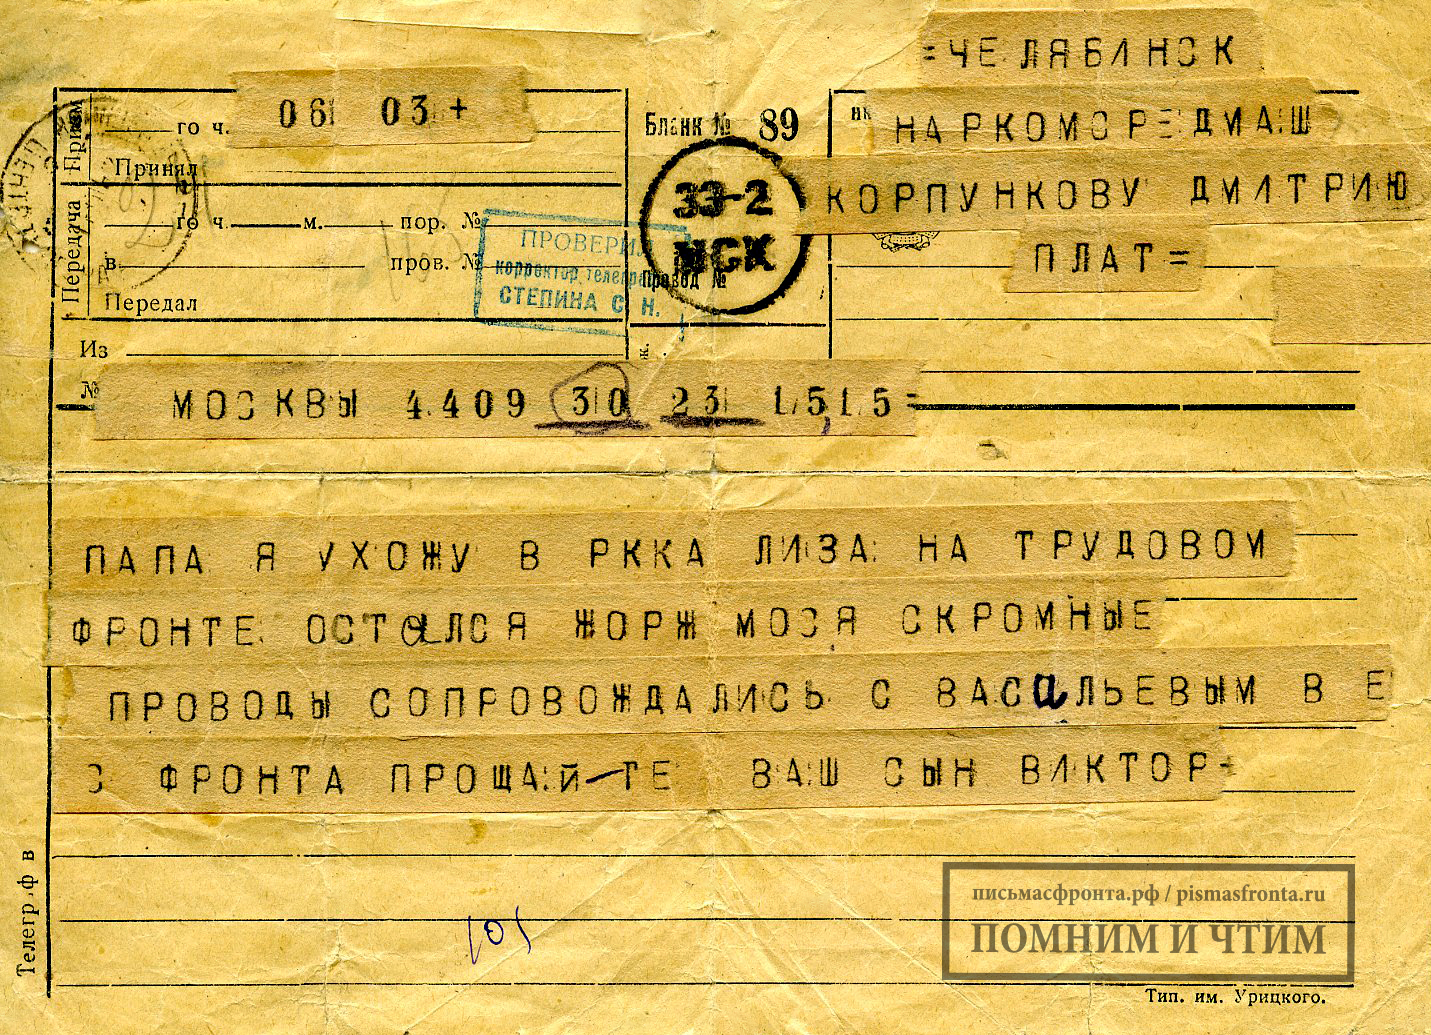 =ЧЕЛЯБИНСК
06 03+
Бланк № 89
НАРКОМСРЕДМАШ
го ч.
Прием
Принял
33-2
МСК
КОРПУНКОВУ ДМИТРИЮ
Передача
го ч. м. пор. №
ПРОВЕРИЛ
ПЛАТ=
в пров. №
корректор телегра
Провод №
Передал
СТЕПИНА С. Н.
Из
№ МОСКВЫ 4409 30 23 1515=
ПАПА Я УХОЖУ В РККА ЛИЗА НА ТРУДОВОМ
ФРОНТЕ ОСТАЛСЯ ЖОРЖ МОСЯ СКРОМНЫЕ
ПРОВОДЫ СОПРОВОЖДАЛИСЬ С ВАСИЛЬЕВЫМ В Е
С ФРОНТА ПРОЩАЙ-ТЕ ВАШ СЫН ВИКТОР=
Телегр.ф в
письмасфронта.рф / pismasfronta.ru
ПОМНИМ И ЧТИМ
Тип. им. Урицкого.